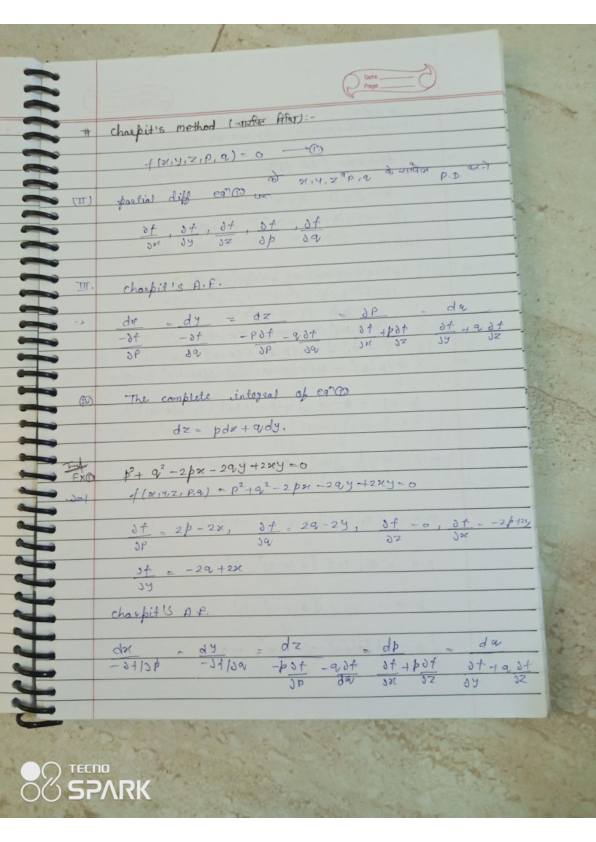 Date
Page
# Charpit's method (चारपिट विधि):-
f(x,y,z,p,q) = 0 → (1)
(II) partial diff eqⁿ(1) को x,y,z,p,q के सापेक्ष P.D करने पर
∂f/∂x, ∂f/∂y, ∂f/∂z, ∂f/∂p, ∂f/∂q
III. Charpit's A.E.
dx/(-∂f/∂p) = dy/(-∂f/∂q) = dz/(-p∂f/∂p - q∂f/∂q) = ∂p/(∂f/∂x + p∂f/∂z) = dq/(∂f/∂y + q∂f/∂z)
(IV) The complete integral of eqⁿ(1)
dz = pdx + qdy.
Imp
Ex(1) p² + q² - 2px - 2qy + 2xy = 0
Sol f(x,y,z,p,q) = p² + q² - 2px - 2qy + 2xy = 0
∂f/∂p = 2p - 2x, ∂f/∂q = 2q - 2y, ∂f/∂z = 0, ∂f/∂x = -2p+2y
∂f/∂y = -2q + 2x
Charpit's A.E.
dx/(-∂f/∂p) = dy/(-∂f/∂q) = dz/(-p∂f/∂p - q∂f/∂q) = dp/(∂f/∂x + p∂f/∂z) = dq/(∂f/∂y + q∂f/∂z)
TECNO
SPARK